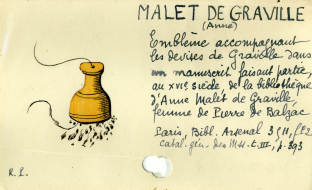 MALET DE GRAVILLE
(Anne)
Emblème accompagnant
les devises de Graville dans
un manuscrit faisant partie,
au XVIe siècle, de la bibliothèque
d'Anne Malet de Graville,
femme de Pierre de Balzac
Paris, Bibl. Arsenal 3511, f. 2
Catal. gén. des Mss. t. III, p. 393
R. L.